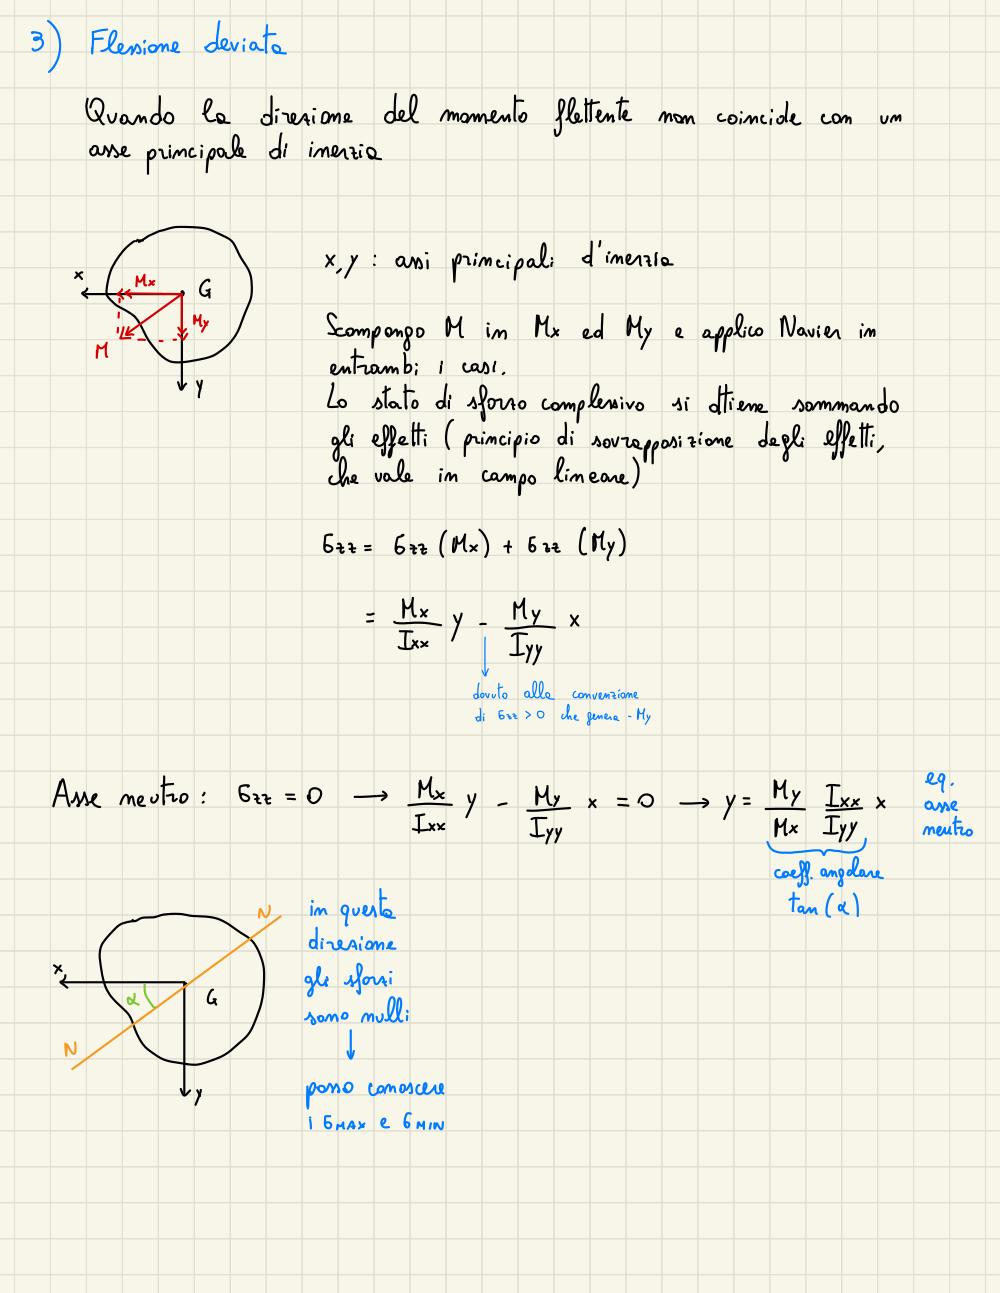 3) Flessione deviata
Quando la direzione del momento flettente non coincide con un
asse principale di inerzia
x
Mx
G
My
M
y
x, y : assi principali d'inerzia
Scompongo M in Mx ed My e applico Navier in
entrambi i casi.
Lo stato di sforzo complessivo si ottiene sommando
gli effetti (principio di sovrapposizione degli effetti,
che vale in campo lineare)
σzz = σzz (Mx) + σzz (My)
= Mx/Ixx y - My/Iyy x
dovuto alla convenzione
di σzz > 0 che genera - My
Asse neutro : σzz = 0 → Mx/Ixx y - My/Iyy x = 0 → y = My/Mx Ixx/Iyy x
eq.
asse
neutro
coeff. angolare
tan (α)
N
x
α
G
N
y
in questa
direzione
gli sforzi
sono nulli
↓
posso conoscere
i σMAX e σMIN